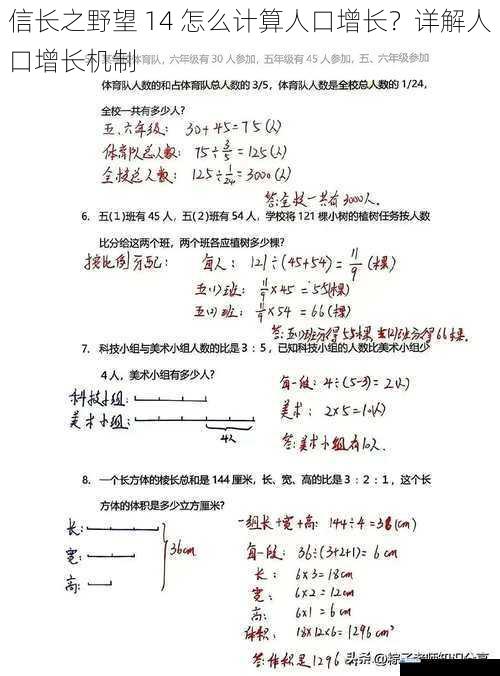 信长之野望 14 怎么计算人口增长？详解人
口增长机制
六年级有 30 人参加，五年级有 45 人参加，五、六年级参加
体育队人数的和占体育队总人数的 3/5，体育队人数是全校总人数的 1/24，
全校一共有多少人？
五、六年级： 30+45=75(人)
体育队总人数： 75÷3/5=125(人)
全校总人数： 125÷1/24=3000(人)
答:全校一共有3000人.
6. 五(1)班有 45 人，五(2)班有 54 人，学校将 121 棵小树的植树任务按人数
比分给这两个班，两个班各应植树多少棵？
按比例分配： 每人： 121÷(45+54)=11/9(棵)
五(1)班： 11/9×45=55(棵)
五(2)班： 11/9×54=66(棵)
答:五(1)班分得55棵,五(2)班分得66棵.
7. 科技小组与美术小组人数的比是 3：5，已知科技小组的人数比美术小组少
4 人，美术小组有多少人？
科技小组：
美术小组：
4人
每一段：4÷(5-3)=2(人)
美术： 2×5=10(人)
答:美术小组有10人.
8. 一个长方体的棱长总和是 144 厘米，长、宽、高的比是 3：2：1，这个长
方体的体积是多少立方厘米？
长：
宽：
高：
36cm
一组长+宽+高： 144÷4=36(cm)
每一段： 36÷(3+2+1)=6cm
长： 6×3=18cm
宽： 6×2=12cm
高： 6×1=6cm
体积： 18×12×6=1296cm³
答:体积是1296
头条@粽子老师知识分享